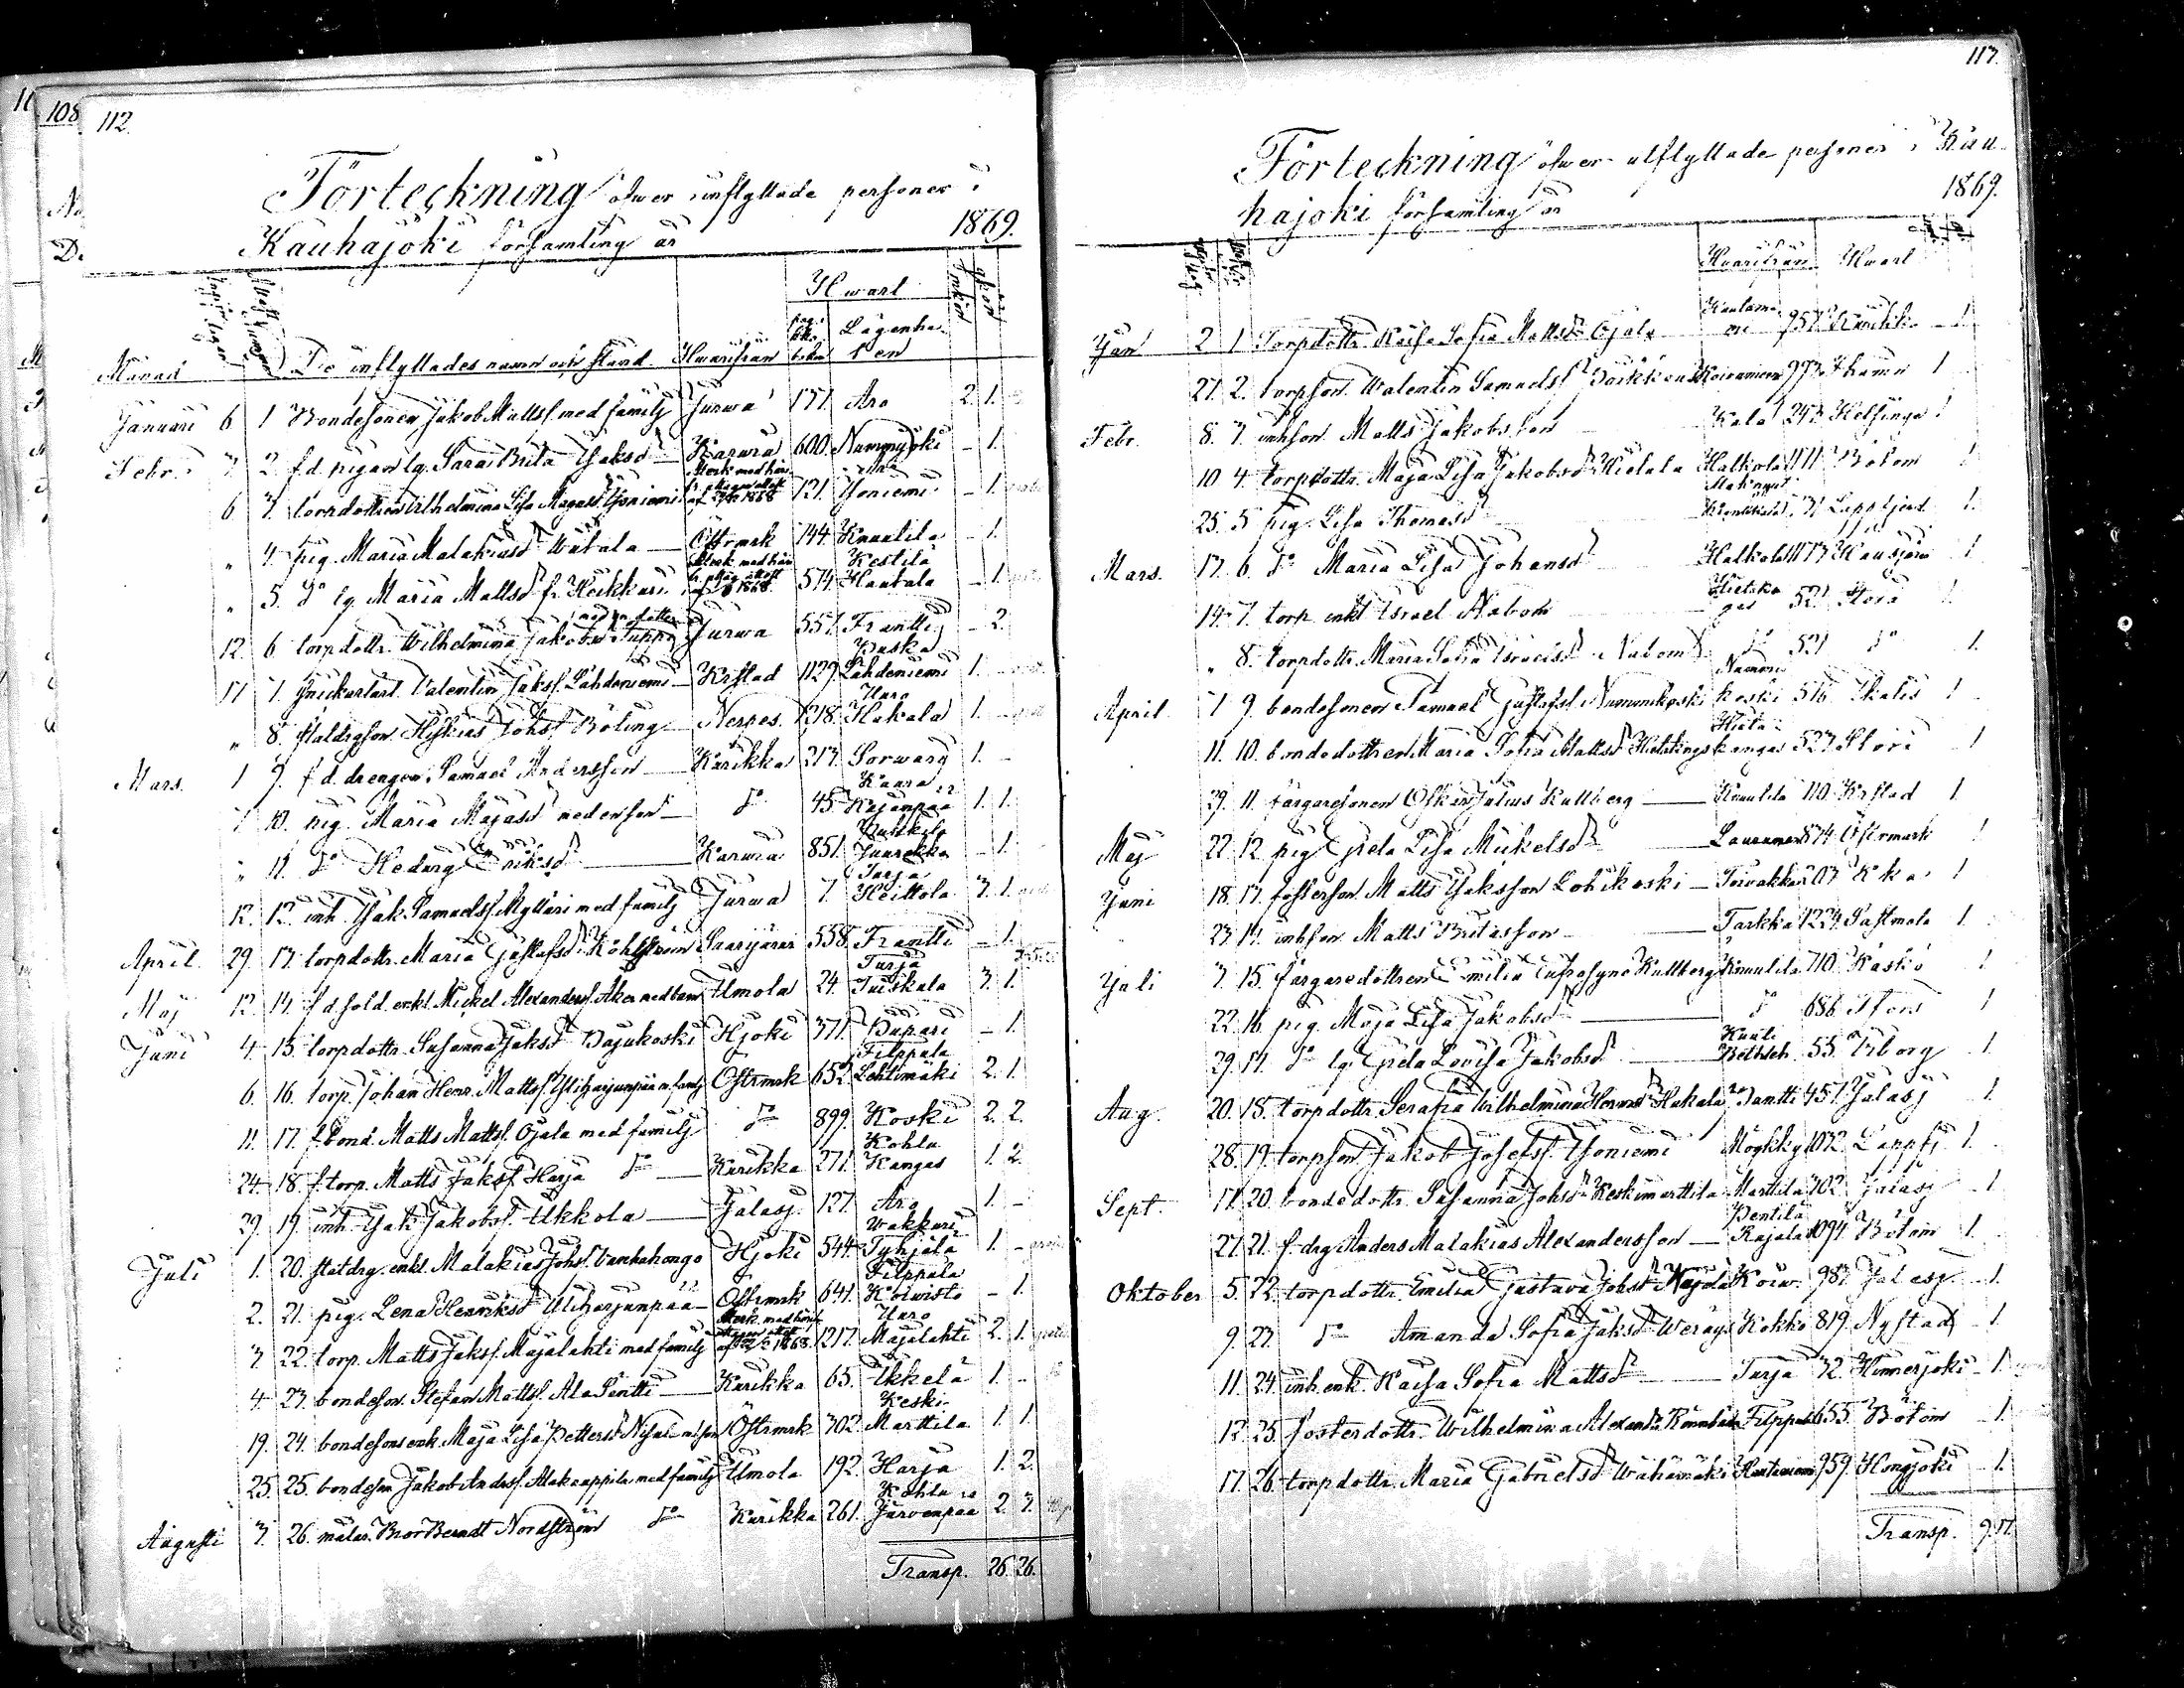 108
112.
Förteckning öfwer inflyttade personer i
Kauhajoki församling år 1869.
Månad
De inflyttades namn och stånd. Hwarifrån Hwart Lägenheten
Januari 6 1 Bondesonen Jakob Mattss. med familj Jurwa 151. Aro 2. 1.
Febr. 3 2. f.d. pigan lg. Sara Brita Isaksdr Karwia 600. Nummijoki - 1.
6 3. torpdottren Wilhelmina Lisa Majasdr Yoniemi 121. Yoniemi - 1.
" 4. pig. Maria Malakiasdr Wätala Östrmrk 144. Knuutila - 1.
" 5. Do lg. Maria Mattsdr fr. Heikkuri 574. Kestilä Hautala - 1.
12. 6. torpdottr. Wilhelmina Jakobsdr Tuppi med en dotter Jurwa 551. Frantti - 2.
17 7. snickarlärl. Valentin Jaks. Lähdeniemi Krstad 1129. Lähdeniemi 1. -
" 8. stalldrgson Hiskias Johs. Böling Nerpes. 1218. Uuro Hakala 1. -
Mars. 1 9. f.d. drengen Samuel Andersson Kurikka 213. Sorwari 1. -
10. pig. Maria Majasdr med en son Do 45. Kaura Kajanpää 1. 1.
" 11. Do Hedwig Eriksdr Karwia 851. Juurakko - 1.
12. 12. inh. Isak Samuelss. Myllari med familj Jurwa 7. Turja Heittola 3. 1.
April 29. 13. torpdottr. Maria Gustafsdr Kohlström Saarijärwi 558. Frantti - 1.
Maj 12. 14. f.d. sold. enkl. Mickel Alexanderss. Aker med barn Ilmola 24. Turja Tuiskula 3. 1.
Juni 4. 15. torpdottr. Susanna Jaksdr Pajukoski Hjoki 371. Pupari - 1.
6. 16. torp. Johan Henr. Mattss. Yliharjunpää m. familj Östrmrk 652. Filppula Lehtimäki 2. 1.
11. 17. f. bond. Matts Mattss. Ojala med familj Do 899. Koski 2. 2.
24. 18. f. torp. Matts Jakss. Harja Do Kurikka 271. Kohla Kangas 1. 2.
29. 19. inh. Isak Jakobss. Ukkola Jalasj. 127. Aro 1. -
Juli 1. 20. statdrg. enkl. Malakias Johs. Vanhahongo Hjoki 544. Wakkuri Tyhjälä 1. -
2. 21. pig. Lena Henriksdr Yliharjunpää Östrmrk 641. Filppula Koiwisto - 1.
3 22. torp. Matts Jakss. Majalahti med familj 1217. Uuro Majalahti 2. 1.
4 23. bondeson. Stefan Mattss. Ala Sentti Kurikka 65. Ikkelä 1. -
19. 24. bondesons enk. Maja Lisa Pettersdr Östrmrk 302. Keski-Marttila 1. 1.
25. 25. bondeson Jakob Anderss. Alakaappila med familj Ilmola 192. Harja 1. 2.
Augusti 3. 26. målar. Bror Berndt Nordström Do Kurikka 261. Kohla Järwenpää 2. 3.
Transp. 26. 26.
113.
Förteckning öfwer utflyttade personer i Kau-
hajoki församling år 1869.
Hwarifrån Hwart
Jan 2 1 Torpdottr. Kaisa Sofia Mattsdr Ojala 957. Kurikka - 1.
27. 2. torpson. Walentin Samuelss. 993. Ikamo 1
Febr. 8. 3. inhson. Matts Jakobsson 243. Helsinge 1
10. 4. torpdottr. Maja Lisa Jakobsdr Hietala Halkola 1111 Bötom 1
25. 5 pig. Lisa Thomasdr 31. Lappfjerd 1.
Mars. 13. 6. Do Maria Lisa Johansdr Halkola 1113 Hausjärwi 1
14. 7. torp. enkl. Israel Nabom 521 Storå 1.
" 8. torpdottr. Maria Sofia Israelsdr Nabom Do 521 Do 1.
April 7 9. bondesonen Samuel Gustafss. Nummikoski Nummikoski 516. Ikalis 1
11. 10. bondedottren Maria Sofia Mattsdr Hietakangas 523 Storå 1
29. 11. färgaresonen Oskar Julius Kullberg Knuutila 710. Krstad 1.
Maj 22 12. pig. Greta Lisa Mickelsdr 874 Östermark 1
Juni 18. 13. fosterson. Matts Isaksson Lohikoski 703 Kka. 1
23 14. inhson. Matts Britasson Tarkka 1234 Sastmola 1.
Juli 3. 15. färgaredottren Emilia Eufrosyne Kullberg Knuutila 710. Kaskö 1
22. 16. pig. Maja Lisa Jakobsdr Do 686. 1
29. 17. Do lg. Greta Lovisa Jakobsdr 55. Wiborg 1.
Aug. 20. 18. torpdottr. Serafia Wilhelmina Hermsdr Hakala Pantti 451. Jalasj 1.
28. 19. torpson. Jakob Josefss. Yoniemi Mögkky 1032. Lappfj 1.
Sept. 17. 20. bondedottr. Susanna Johsdr Keskimarttila Marttila 302. Jalasj 1
27. 21. f. drg. Anders Malakias Alexandersson Pentilä Rajala 1094. Bötom 1.
Oktober 5. 22. torpdottr. Emilia Gustava Johsdr Koiw. 987. Jalasj. 1.
9. 23. Do Amanda Sofia Jaksdr Kokko 819. Nystad 1
11. 24. inh. enk. Kaisa Sofia Mattsdr Turja 32. Hinnerjoki 1.
12. 25. fosterdottr. Wilhelmina Alexandr Filppula 655. Bötom 1.
17. 26. torpdottr. Maria Gabrielsdr Wähämäki 959. Hongjoki 1.
Transp. 9. 17.